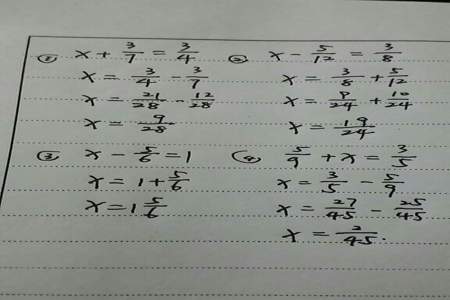 ① x + 3/7 = 3/4
x = 3/4 - 3/7
x = 21/28 - 12/28
x = 9/28
② x - 5/12 = 3/8
x = 3/8 + 5/12
x = 9/24 + 10/24
x = 19/24
③ x - 5/6 = 1
x = 1 + 5/6
x = 1 5/6
④ 5/9 + x = 3/5
x = 3/5 - 5/9
x = 27/45 - 25/45
x = 2/45.